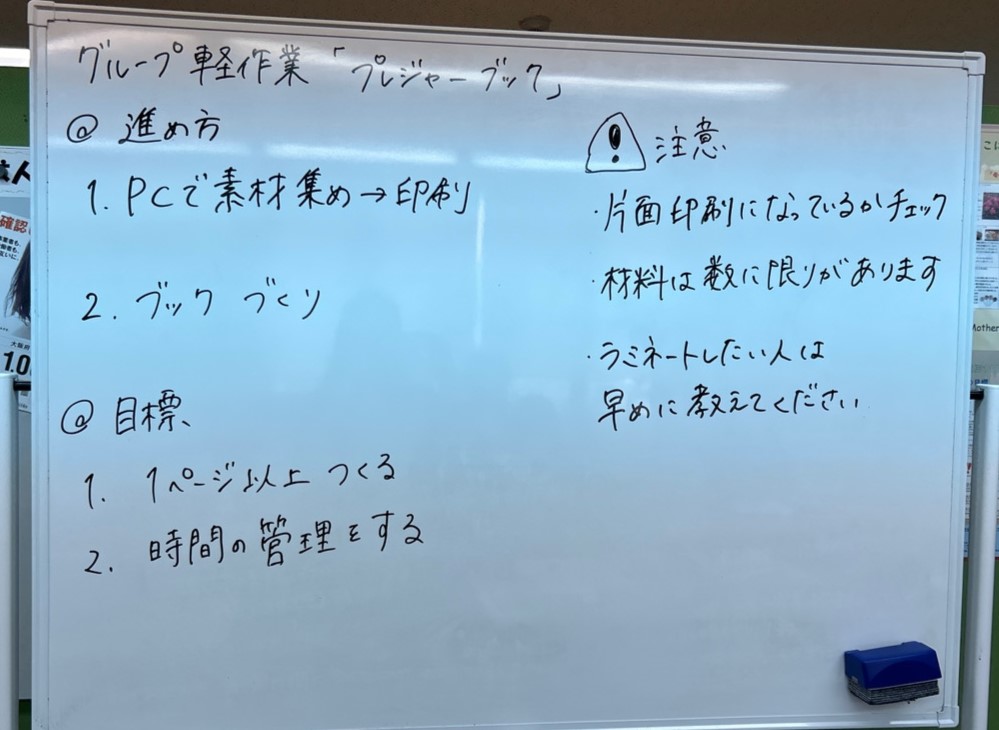 グループ軽作業「プレジャーブック」
@ 進め方
1. PCで素材集め→印刷
2. ブックづくり
@ 目標、
1. 1ページ以上つくる
2. 時間の管理をする
! 注意
・片面印刷になっているかチェック
・材料は数に限りがあります
・ラミネートしたい人は
早めに教えてください
確認
大阪府
1,0
こに
Mother